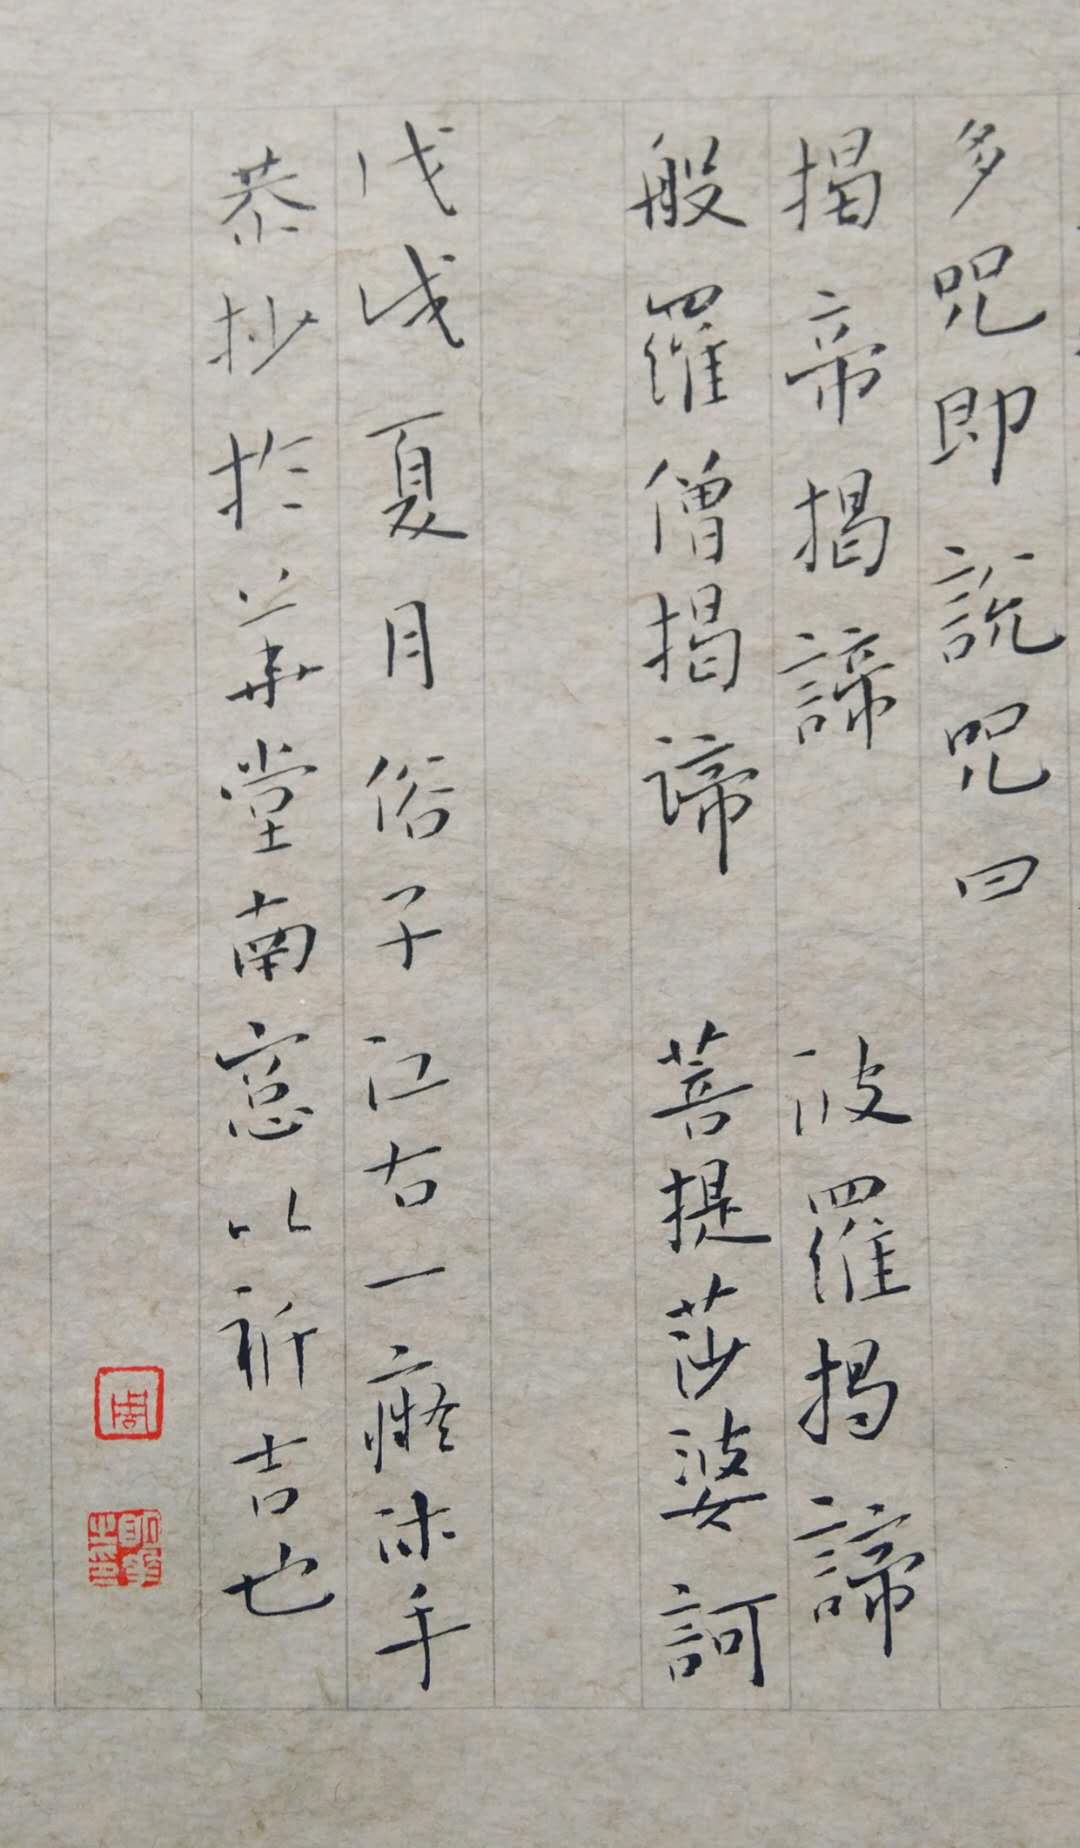 多咒即說咒曰
揭帝揭諦 波羅揭諦
般羅僧揭諦 菩提莎婆訶
戊戌夏月俗子江右一癡沐手
恭抄於華堂南窓以祈吉也
周